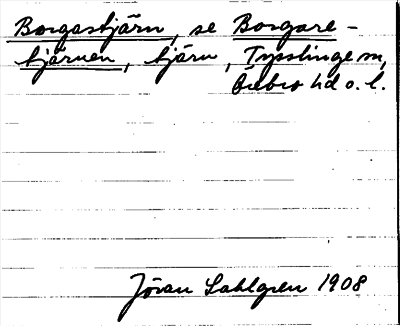 Borgastjärn, se Borgare-
tjärnen, tjärn, Tysslinge sn,
Örebro hd o. l.
Jöran Sahlgren 1908